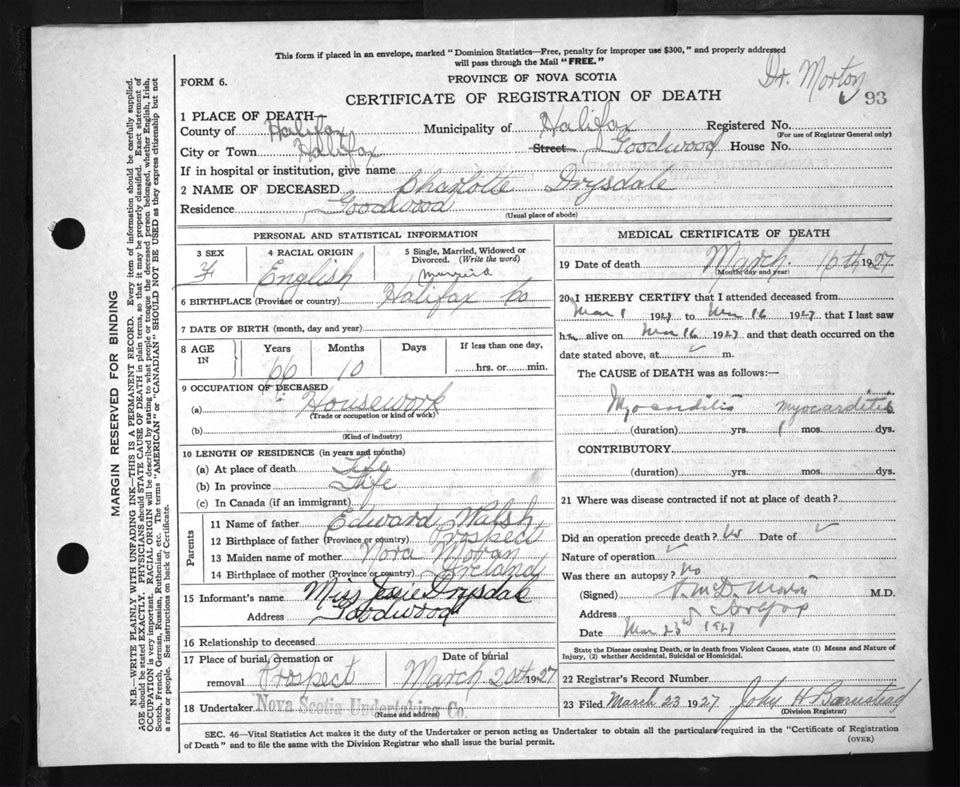 This form if placed in an envelope, marked "Dominion Statistics—Free, penalty for improper use $300," and properly addressed
will pass through the Mail "FREE."
Dr. Morton
FORM 6.
PROVINCE OF NOVA SCOTIA
93
CERTIFICATE OF REGISTRATION OF DEATH
1 PLACE OF DEATH
County of Halifax Municipality of Halifax Registered No.
(For use of Registrar General only)
City or Town Halifax Street Goodwood House No.
If in hospital or institution, give name
2 NAME OF DECEASED Charlotte Drysdale
Residence Goodwood
(Usual place of abode)
PERSONAL AND STATISTICAL INFORMATION
3 SEX 4 RACIAL ORIGIN 5 Single, Married, Widowed or
Divorced. (Write the word)
F English married
6 BIRTHPLACE (Province or country) Halifax Co
7 DATE OF BIRTH (month, day and year)
8 AGE IN Years Months Days If less than one day,
66 10 hrs. or min.
9 OCCUPATION OF DECEASED
(a) Housework
(Trade or occupation or kind of work)
(b)
(Kind of industry)
10 LENGTH OF RESIDENCE (in years and months)
(a) At place of death Life
(b) In province Life
(c) In Canada (if an immigrant)
Parents
11 Name of father Edward Walsh
12 Birthplace of father (Province or country) Prospect
13 Maiden name of mother Nora Moran
14 Birthplace of mother (Province or country) Ireland
15 Informant's name Miss Jessie Drysdale
Address Goodwood
16 Relationship to deceased
17 Place of burial, cremation or Date of burial
removal Prospect March 20th 1927
18 Undertaker Nova Scotia Undertaking Co.
(Name and address)
MEDICAL CERTIFICATE OF DEATH
19 Date of death March 16th 1927
(Month day and year)
20 I HEREBY CERTIFY that I attended deceased from
Mar 1 1927 to Mar 16 1927 that I last saw
h alive on Mar 16 1927 and that death occurred on the
date stated above, at m.
The CAUSE OF DEATH was as follows:—
Myocarditis myocarditis
(duration) yrs. 1 mos. dys.
CONTRIBUTORY
(duration) yrs. mos. dys.
21 Where was disease contracted if not at place of death?
Did an operation precede death? No Date of
Nature of operation
Was there an autopsy? No
(Signed) Morton M.D.
Address
Date Mar 23d 1927
State the Disease causing Death, or in death from Violent Causes, state (1) Means and Nature of
Injury, (2) whether Accidental, Suicidal or Homicidal.
22 Registrar's Record Number
23 Filed March 23 1927 John H Barnstead
(Division Registrar)
SEC. 46—Vital Statistics Act makes it the duty of the Undertaker or person acting as Undertaker to obtain all the particulars required in the "Certificate of Registration
of Death" and to file the same with the Division Registrar who shall issue the burial permit.
(OVER)
MARGIN RESERVED FOR BINDING
N.B.—WRITE PLAINLY WITH UNFADING INK—THIS IS A PERMANENT RECORD. Every item of information should be carefully supplied.
AGE should be stated EXACTLY. PHYSICIANS should STATE CAUSE OF DEATH in plain terms, so that it may be properly classified. Exact statement of
OCCUPATION is very important. RACIAL ORIGIN will be described by stating to what people or tongue the deceased person belonged, whether English, Irish,
Scotch, French, German, Russian, Ruthenian, etc. The terms "AMERICAN" or "CANADIAN" SHOULD NOT BE USED as they express citizenship but not
a race or people. See instructions on back of Certificate.